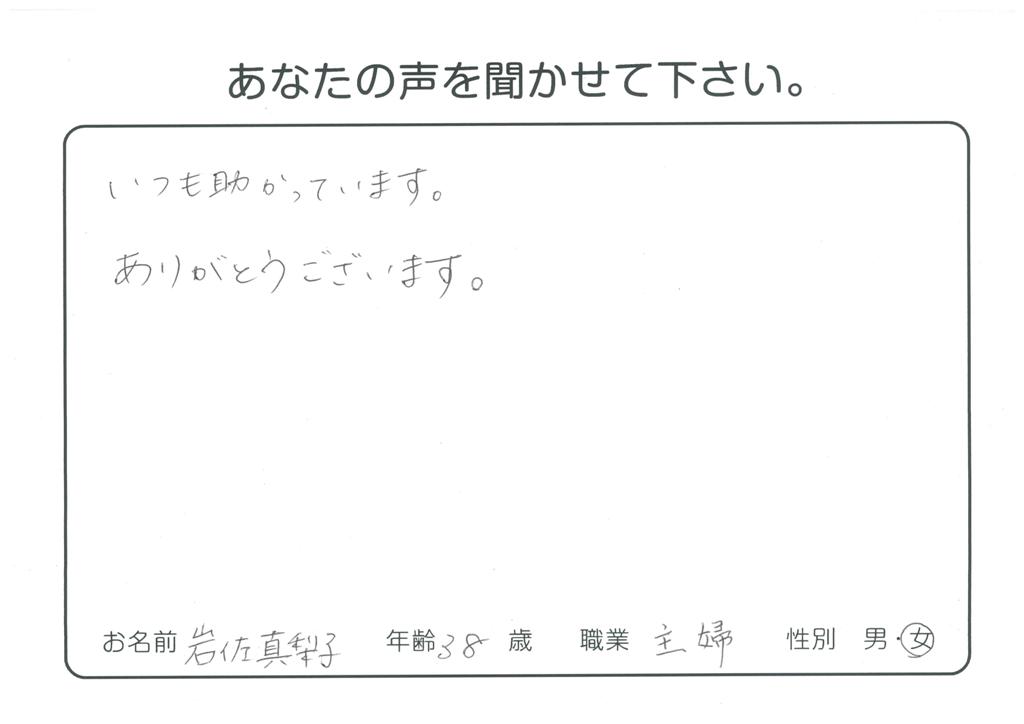 あなたの声を聞かせて下さい。
いつも助かっています。
ありがとうございます。
お名前 岩佐真梨子 年齢 38 歳 職業 主婦 性別 男・女